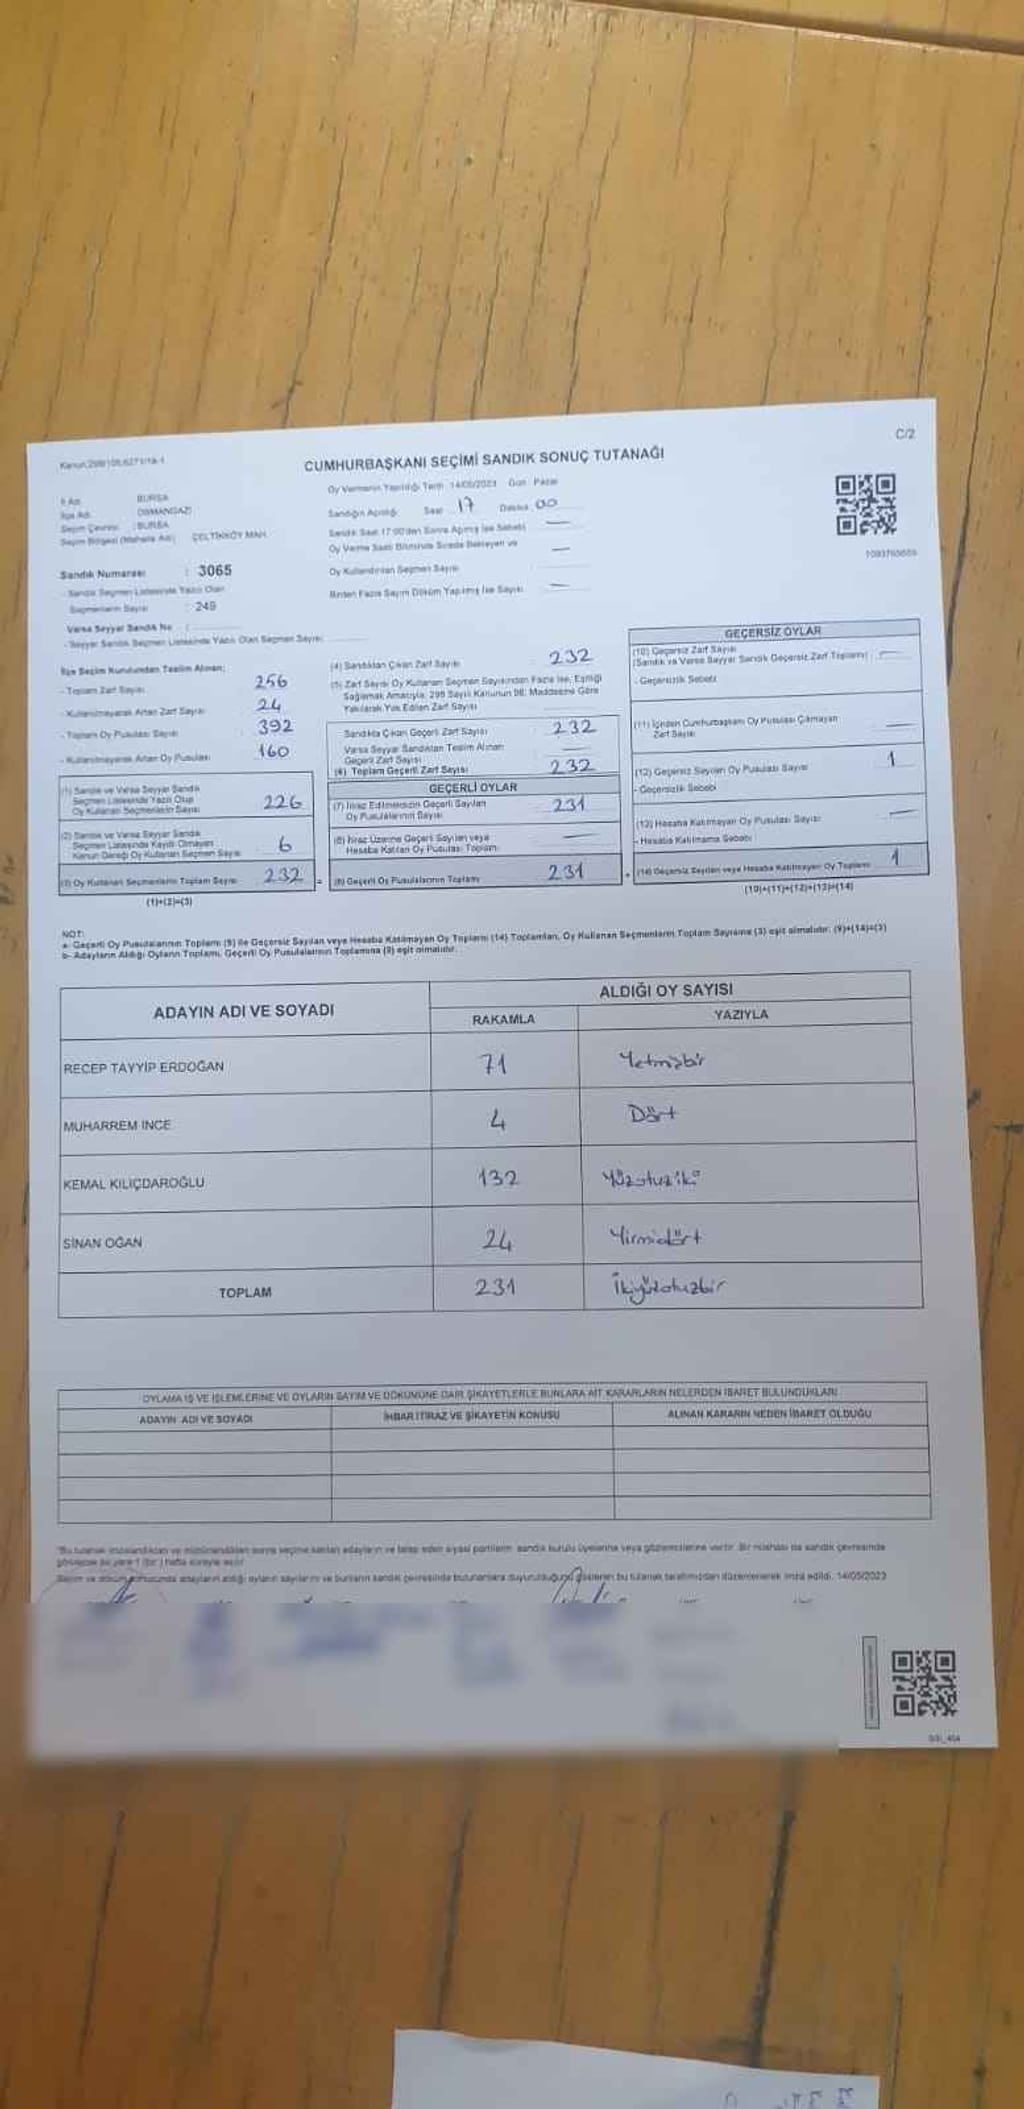 C/2
CUMHURBAŞKANI SEÇİMİ SANDIK SONUÇ TUTANAĞI
Oy Vermenin Yapıldığı Tarih 14/05/2023 Gün Pazar
İl Adı BURSA
İlçe Adı OSMANGAZİ
Seçim Çevresi : BURSA
Seçim Bölgesi (Mahalle Adı) ÇELTİKKÖY MAH.
Sandığın Açıldığı Saat 17 Dakika 00
Sandık Saat 17:00'den Sonra Açılmış İse Sebebi —
Oy Verme Saati Bitiminde Sırada Bekleyen ve
Oy Kullandırılan Seçmen Sayısı —
Birden Fazla Sayım Döküm Yapılmış İse Sayısı —
Sandık Numarası : 3065
- Sandık Seçmen Listesinde Yazılı Olan
Seçmenlerin Sayısı : 249
Varsa Seyyar Sandık No :
- Seyyar Sandık Seçmen Listesinde Yazılı Olan Seçmen Sayısı
İlçe Seçim Kurulundan Teslim Alınan;
- Toplam Zarf Sayısı 256
- Kullanılmayarak Artan Zarf Sayısı 24
- Toplam Oy Pusulası Sayısı 392
- Kullanılmayarak Artan Oy Pusulası 160
(1) Sandık ve Varsa Seyyar Sandık
Seçmen Listesinde Yazılı Olup
Oy Kullanan Seçmenlerin Sayısı 226
(2) Sandık ve Varsa Seyyar Sandık
Seçmen Listesinde Kayıtlı Olmayan
Kanun Gereği Oy Kullanan Seçmen Sayısı 6
(3) Oy Kullanan Seçmenlerin Toplam Sayısı 232 =
(1)+(2)=(3)
(4) Sandıktan Çıkan Zarf Sayısı 232
(5) Zarf Sayısı Oy Kullanan Seçmen Sayısından Fazla İse, Eşitliği
Sağlamak Amacıyla, 298 Sayılı Kanunun 98. Maddesine Göre
Yakılarak Yok Edilen Zarf Sayısı
Sandıkta Çıkan Geçerli Zarf Sayısı 232
Varsa Seyyar Sandıktan Teslim Alınan
Geçerli Zarf Sayısı —
(6) Toplam Geçerli Zarf Sayısı 232
GEÇERLİ OYLAR
(7) İtiraz Edilmeksizin Geçerli Sayılan
Oy Pusulalarının Sayısı 231
(8) İtiraz Üzerine Geçerli Sayılan veya
Hesaba Katılan Oy Pusulası Toplamı —
(9) Geçerli Oy Pusulalarının Toplamı 231 +
GEÇERSİZ OYLAR
(10) Geçersiz Zarf Sayısı
(Sandık ve Varsa Seyyar Sandık Geçersiz Zarf Toplamı) —
- Geçersizlik Sebebi
(11) İçinden Cumhurbaşkanı Oy Pusulası Çıkmayan
Zarf Sayısı —
(12) Geçersiz Sayılan Oy Pusulası Sayısı 1
- Geçersizlik Sebebi
(13) Hesaba Katılmayan Oy Pusulası Sayısı —
- Hesaba Katılmama Sebebi
(14) Geçersiz Sayılan veya Hesaba Katılmayan Oy Toplamı 1
(10)+(11)+(12)+(13)=(14)
NOT:
a- Geçerli Oy Pusulalarının Toplamı (9) ile Geçersiz Sayılan veya Hesaba Katılmayan Oy Toplamı (14) Toplamları, Oy Kullanan Seçmenlerin Toplam Sayısına (3) eşit olmalıdır. (9)+(14)=(3)
b- Adayların Aldığı Oyların Toplamı, Geçerli Oy Pusulalarının Toplamına (9) eşit olmalıdır.
ADAYIN ADI VE SOYADI ALDIĞI OY SAYISI
RAKAMLA YAZIYLA
RECEP TAYYİP ERDOĞAN 71 Yetmişbir
MUHARREM İNCE 4 Dört
KEMAL KILIÇDAROĞLU 132 Yüzotuziki
SİNAN OĞAN 24 Yirmidört
TOPLAM 231 İkiyüzotuzbir
OYLAMA İŞ VE İŞLEMLERİNE VE OYLARIN SAYIM VE DÖKÜMÜNE DAİR ŞİKAYETLERLE BUNLARA AİT KARARLARIN NELERDEN İBARET BULUNDUKLARI
ADAYIN ADI VE SOYADI İHBAR İTİRAZ VE ŞİKAYETİN KONUSU ALINAN KARARIN NEDEN İBARET OLDUĞU